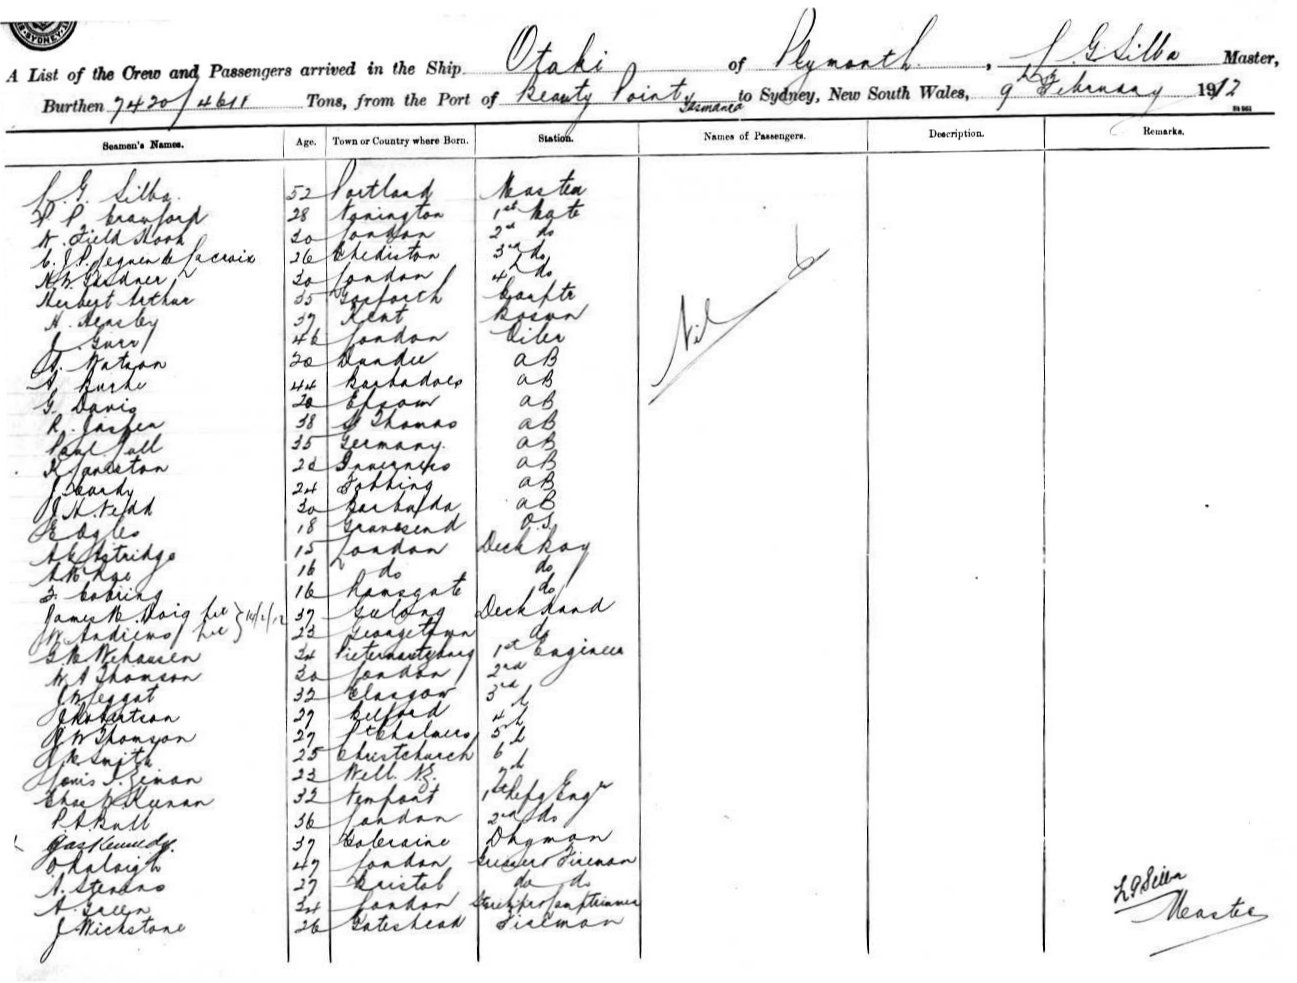 SYDNEY
A List of the Crew and Passengers arrived in the Ship Otaki of Plymouth, L G Silba Master,
Burthen 7420/4611 Tons, from the Port of Beauty Point Tasmania to Sydney, New South Wales, 9th February 1912
Seamen's Names. Age. Town or Country where Born. Station. Names of Passengers. Description. Remarks.
L. G. Silba. 52 Portland Master
P. P. Crawford 28 1st Mate
W. Field Hook 30 London 2nd do
C. J. P. de Lacroix 26 Chediston 3rd do
H. W. Gardner 30 London 4th do
Herbert Arthur 35 Gosforth Carptr
H. Hensley 37 Kent Bosun
J. Gurr 46 London
A. Watson 20 Dundee AB
A. Burke 44 Barbadoes AB
G. Davis 20 Epsom AB
R. Jasper 38 St Thomas AB
Paul Jall 35 Germany. AB
K Janeston Inverness AB
J Hardy 24 Fobbing AB
J H Kidd 30 Barbados AB
E Ogles 18 Gravesend O.S.
A E Astridge 15 London Deck Boy
16 do do
F. Cobring 16 Ramsgate do
James W. Doig 37 Geelong Deck Hand
W. Andrews 14/2/12 23 Georgetown do
G W Wehausen 34 Pietermaritzburg 1st Engineer
W. A Thomson 30 London 2nd
J W Leggat 32 Glasgow 3rd
J Robertson 27 Belford 4th
A W Thomson 27 Pt Chalmers 5th
A R Smith 25 Christchurch 6th
Louis I. Ziman 23 Well. NZ. 7th
Chas W. Keenan 32 Newport 1st Refg Engr
P. A Bull 36 London 2nd do
Jas Kennedy. 37 Coleraine Dkyman
O Raleigh 47 London Greaser & Fireman
A. Stevens 27 Bristol do do
A. Green 34 London Storekpr & Lamptrimmer
J Wickstone 26 Gateshead Fireman
Nil
L G Silba
Master